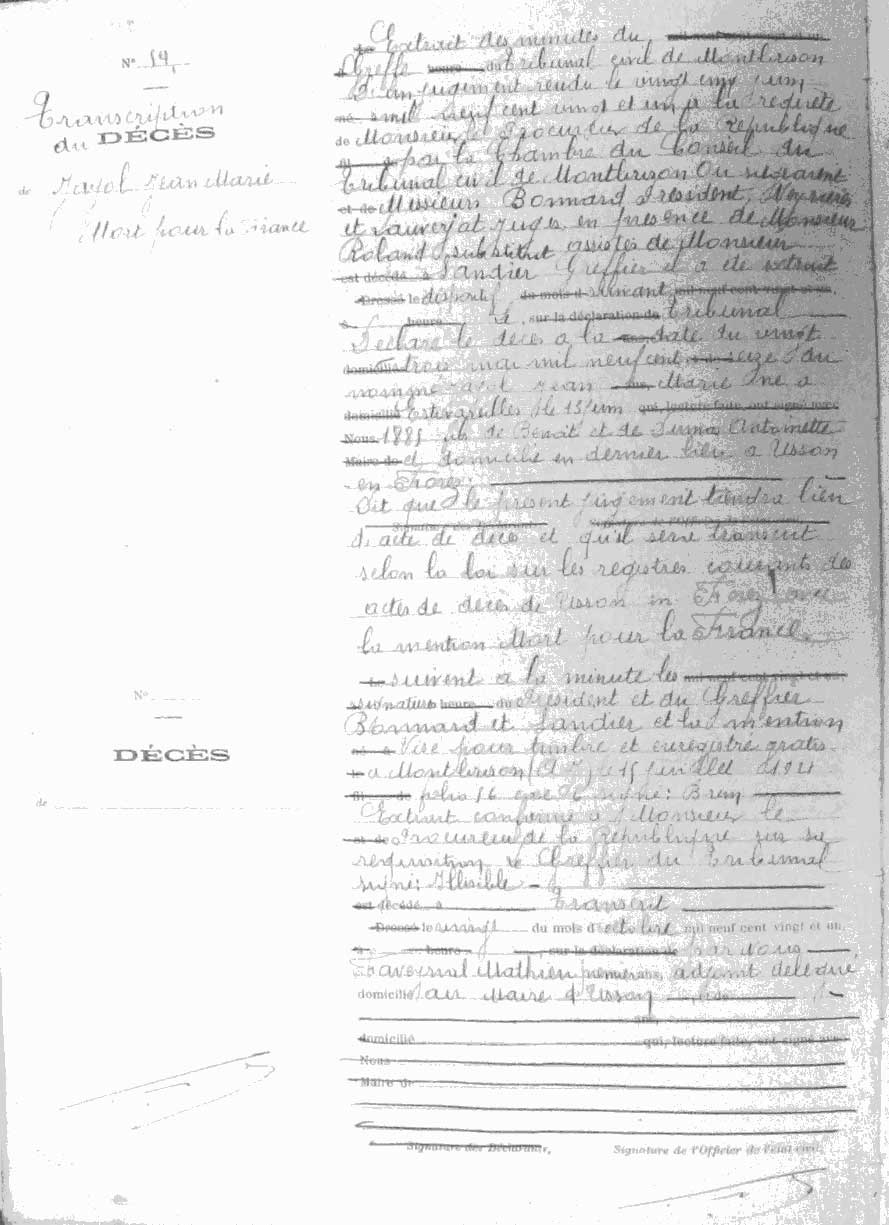 N° 14
Transcription
du DÉCÈS
de Jayol Jean Marie
Mort pour la France
Extrait des minutes du
Greffe du Tribunal civil de Montbrison
D'un jugement rendu le vingt cinq juin
mil neuf cent vingt et un à la requête
de Monsieur le Procureur de la République
par la Chambre du Conseil du
Tribunal civil de Montbrison Où siégeaient
Messieurs Bonnard Président,
et Juges, en présence de Monsieur
Roland, substitut assistés de Monsieur
Greffier il a été extrait
le dispositif suivant
Le Tribunal
Déclare le décès à la date du vingt
trois mai mil neuf cent seize du
nommé Jayol Jean Marie né à
Estivareilles le 13 juin
1885 fils de Benoît et de Antoinette
et domicilié en dernier lieu à Usson
en Forez.
Dit que le présent jugement tiendra lieu
d'acte de décès et qu'il sera transcrit
selon la loi sur les registres courants des
actes de décès de Usson en Forez avec
la mention Mort pour la France.
suivent à la minute les
signatures du Président et du Greffier
Bonnard et et la mention
Visé pour timbre et enregistré gratis
à Montbrison le 15 juillet 1921
folio 16 signé: Brun
Extrait conforme à Monsieur le
Procureur de la République sur sa
réquisition le Greffier du Tribunal
signé: Illisible
Transcrit
le vingt du mois d'octobre mil neuf cent vingt et un
par Nous
Mathieu adjoint délégué
domicilié par Maire d'Usson
N°
DÉCÈS
de
domicilié qui, lecture faite, ont signé avec
Nous
Maire de
Signature des Déclarants, Signature de l'Officier de l'état civil,